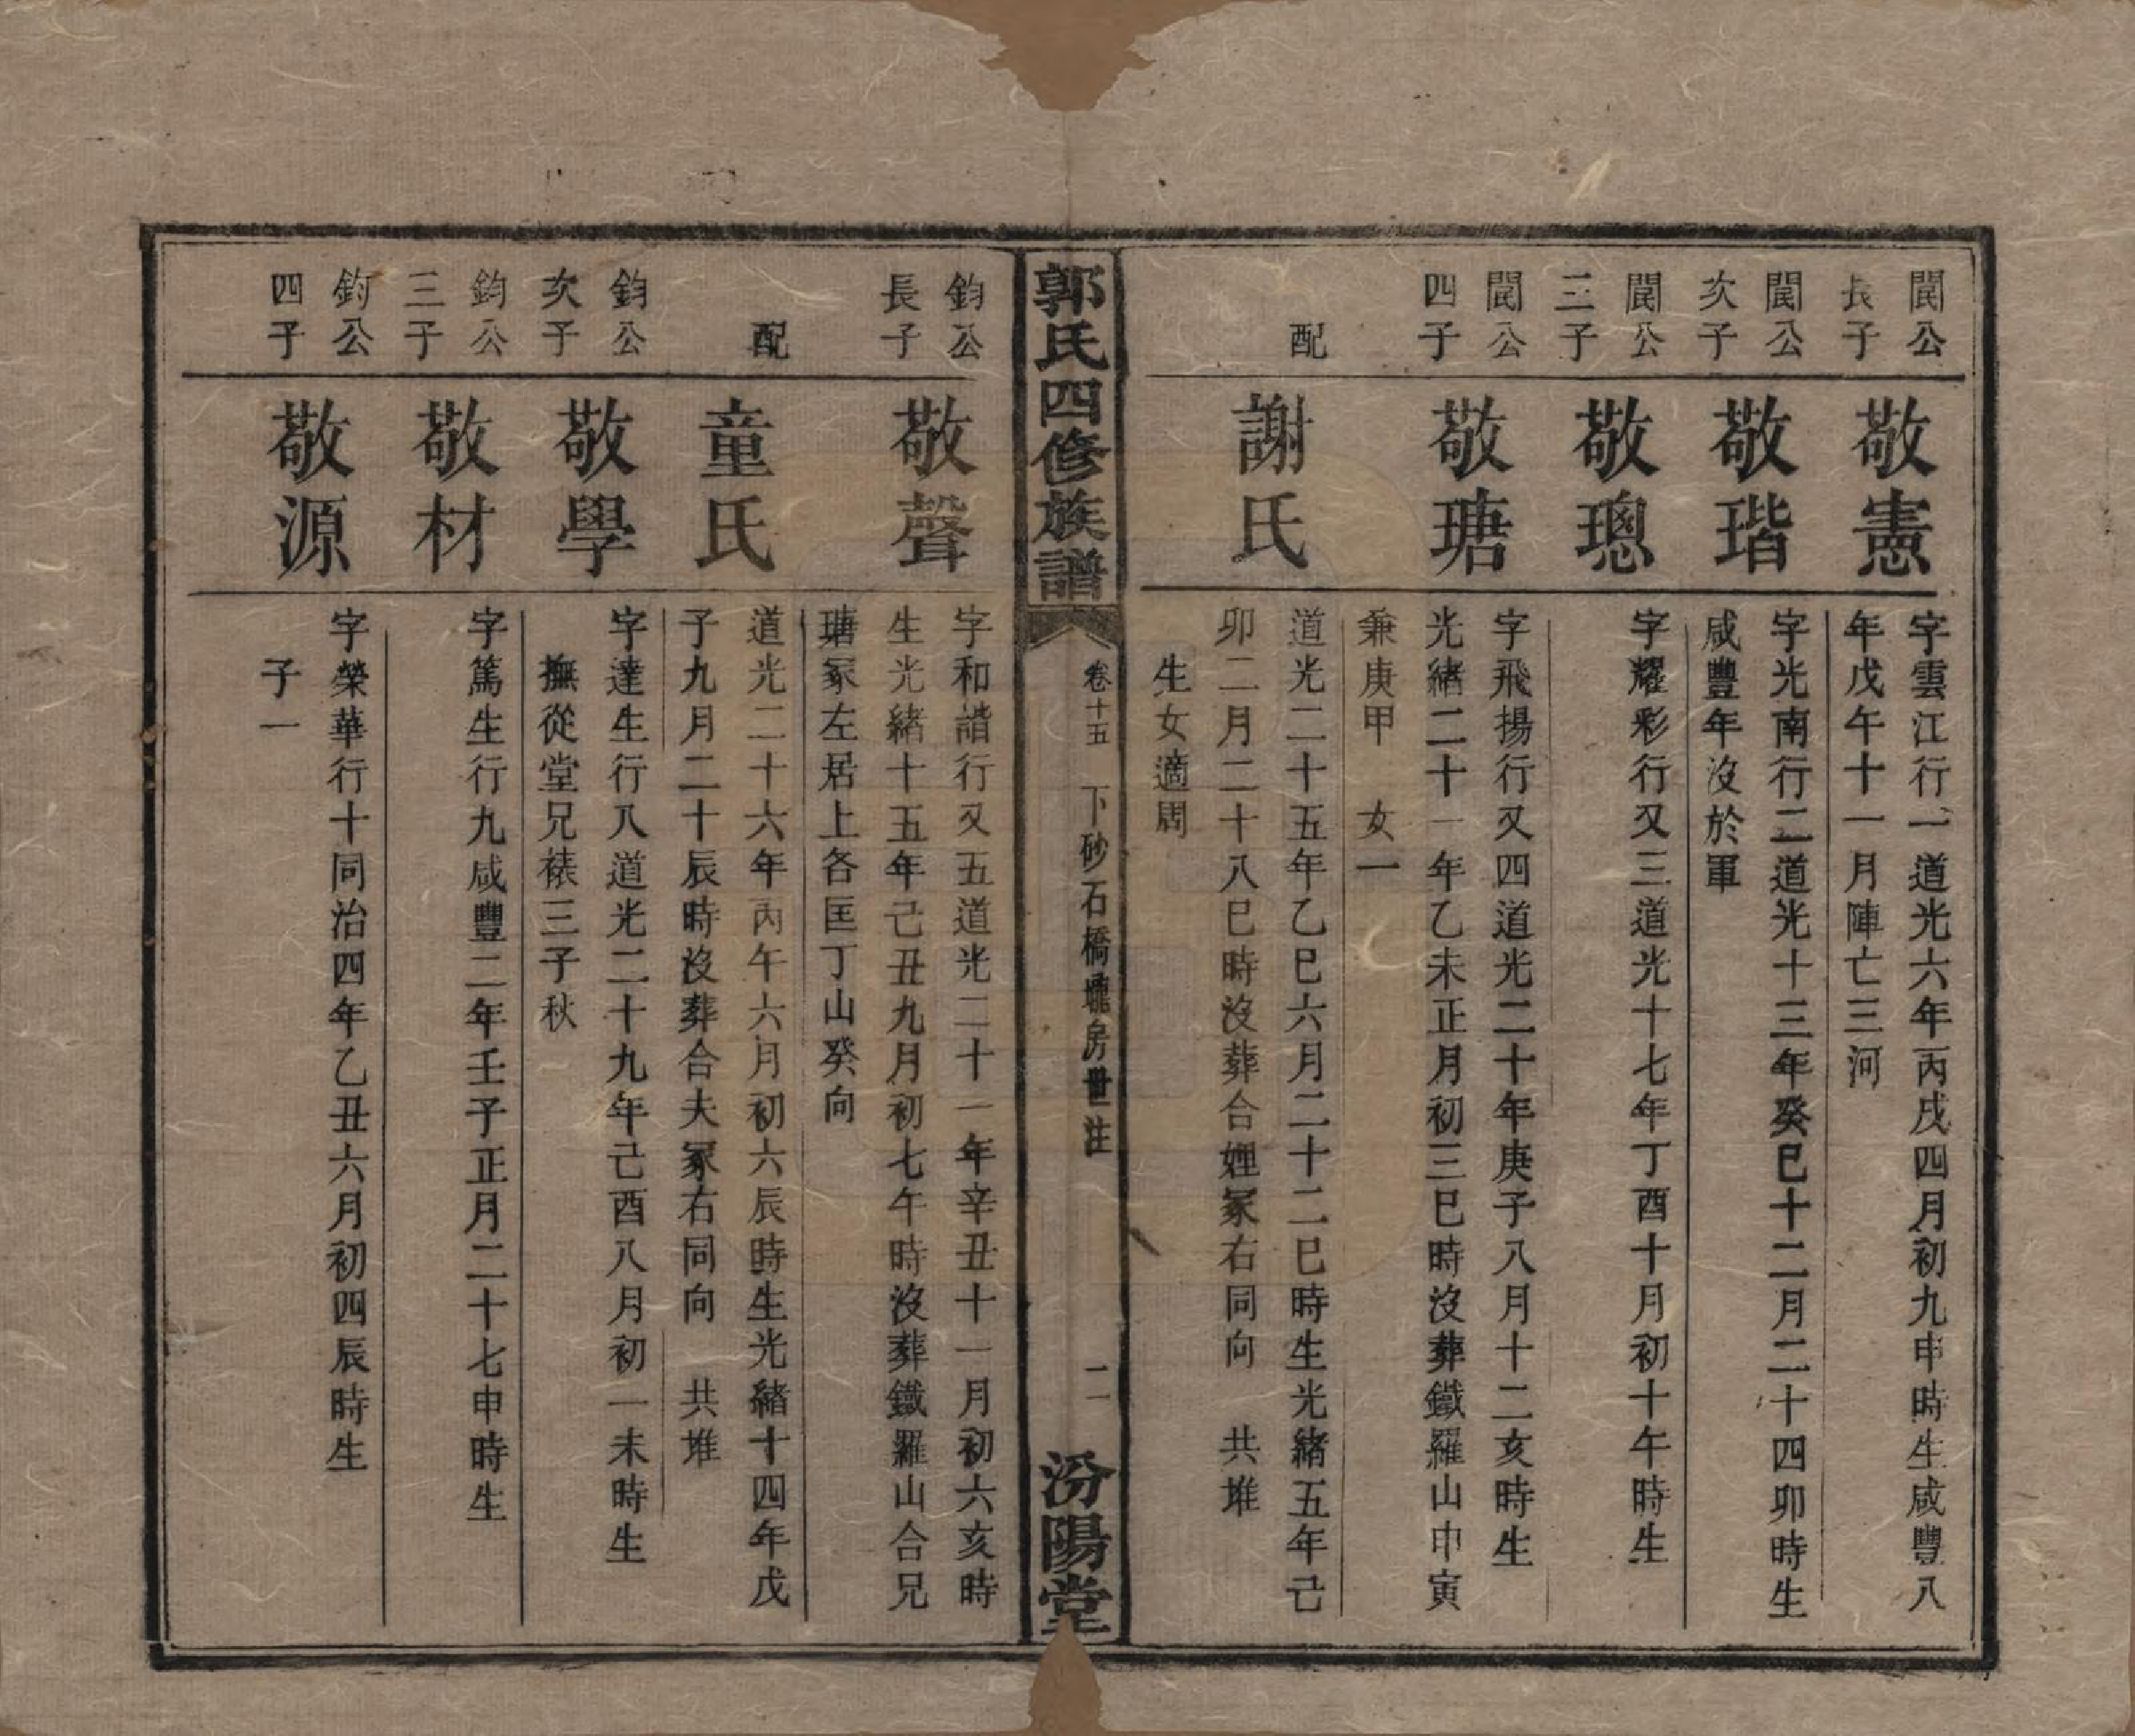 閬公
長子
敬憲
字雲江行一道光六年丙戌四月初九申時生咸豐八
年戊午十一月陣亡三河
閬公
次子
敬瑎
字光南行二道光十三年癸巳十二月二十四卯時生
咸豐年沒於軍
閬公
三子
敬璁
字耀彩行又三道光十七年丁酉十月初十午時生
閬公
四子
敬瑭
字飛揚行又四道光二十年庚子八月十二亥時生
光緒二十一年乙未正月初三巳時沒葬鐵羅山申寅
兼庚甲 女一
配
謝氏
道光二十五年乙巳六月二十二巳時生光緒五年己
卯二月二十八巳時沒葬合娌冢右同向 共堆
生女適周
郭氏四修族譜
卷十五 下砂石橋瓏房世注 二一
汾陽堂
鈞公
長子
敬聲
字和諧行又五道光二十一年辛丑十一月初六亥時
生光緒十五年己丑九月初七午時沒葬鐵羅山合兄
瑭冢左居上各匡丁山癸向
配
童氏
道光二十六年丙午六月初六辰時生光緒十四年戊
子九月二十辰時沒葬合夫冢右同向 共堆
鈞公
次子
敬學
字達生行八道光二十九年己酉八月初一未時生
撫從堂兄裱三子秋
鈞公
三子
敬材
字篤生行九咸豐二年壬子正月二十七申時生
鈞公
四子
敬源
字榮華行十同治四年乙丑六月初四辰時生
子一